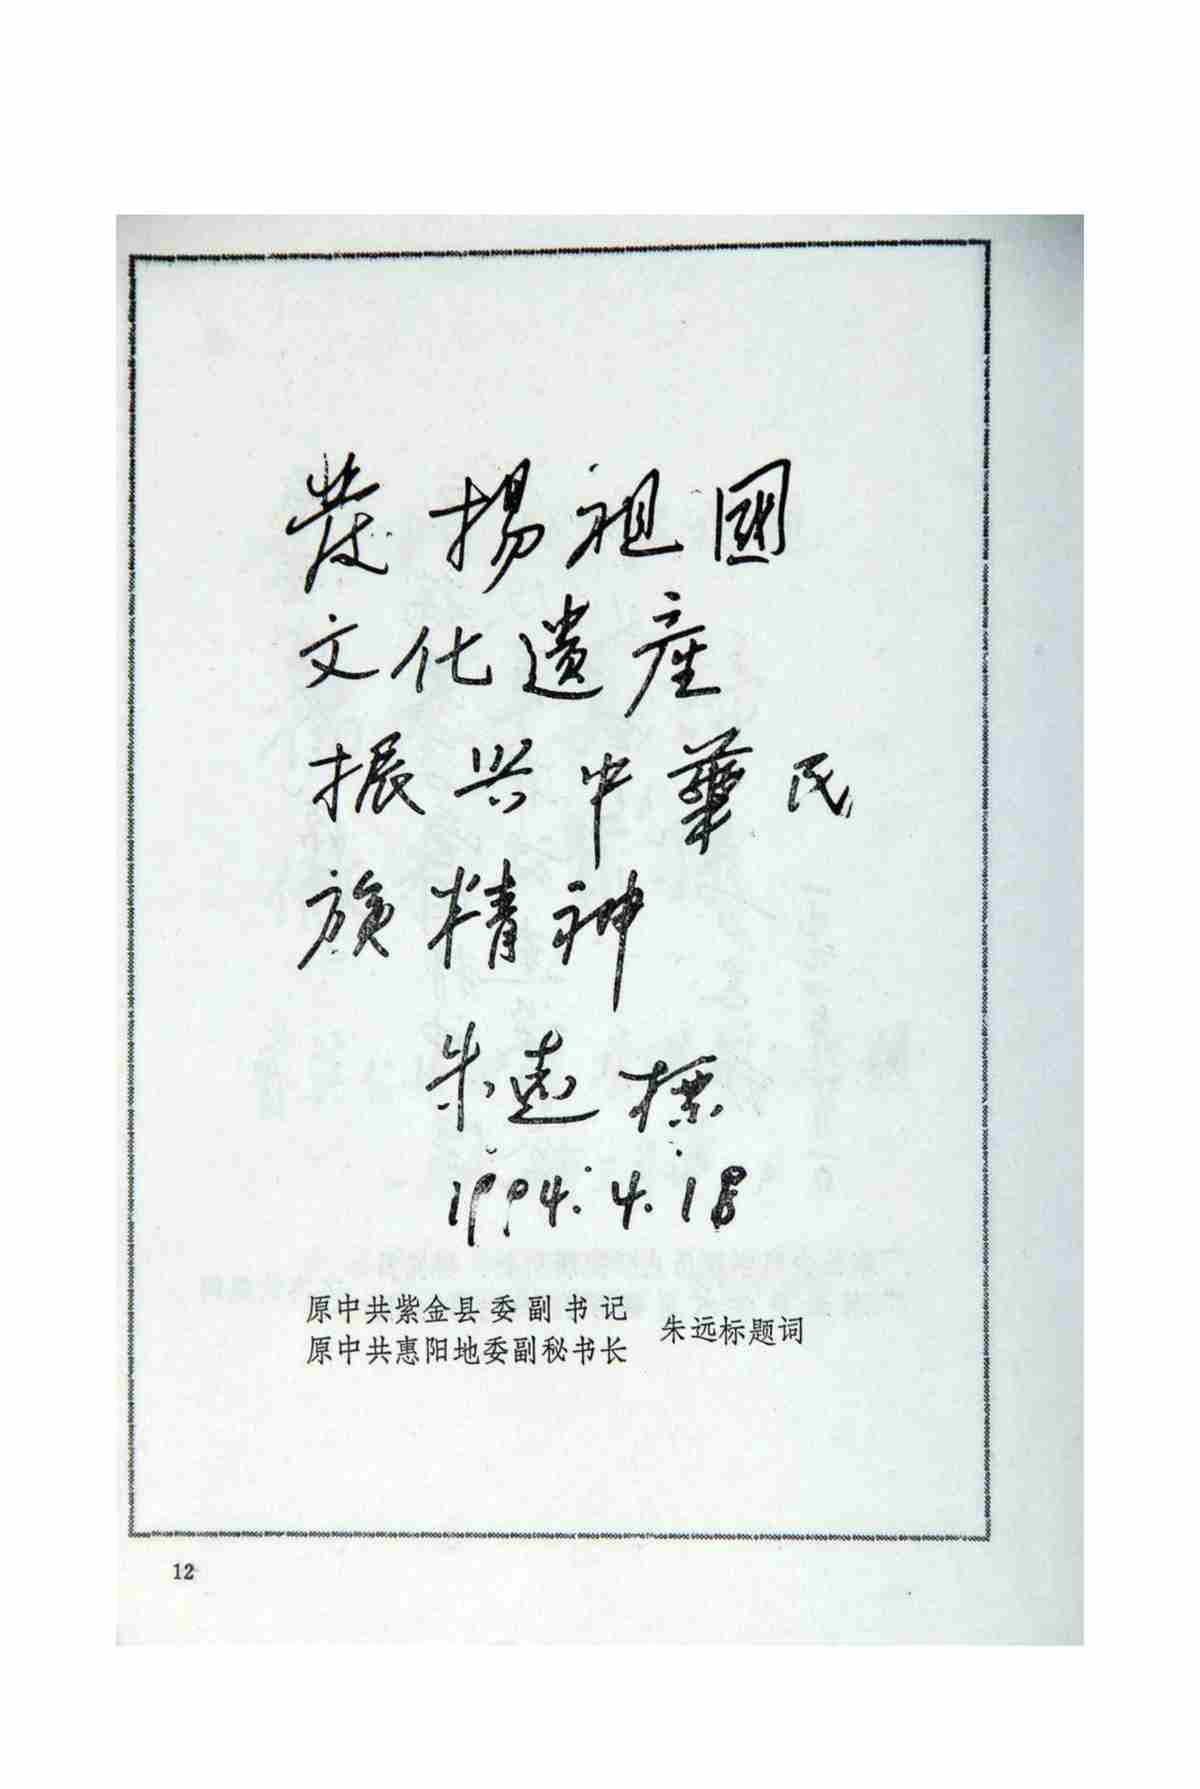 发揚祖國
文化遺産
振兴中華民
族精神
朱遠標
1994.4.18
原中共紫金县委副书记
原中共惠阳地委副秘书长
朱远标题词
12